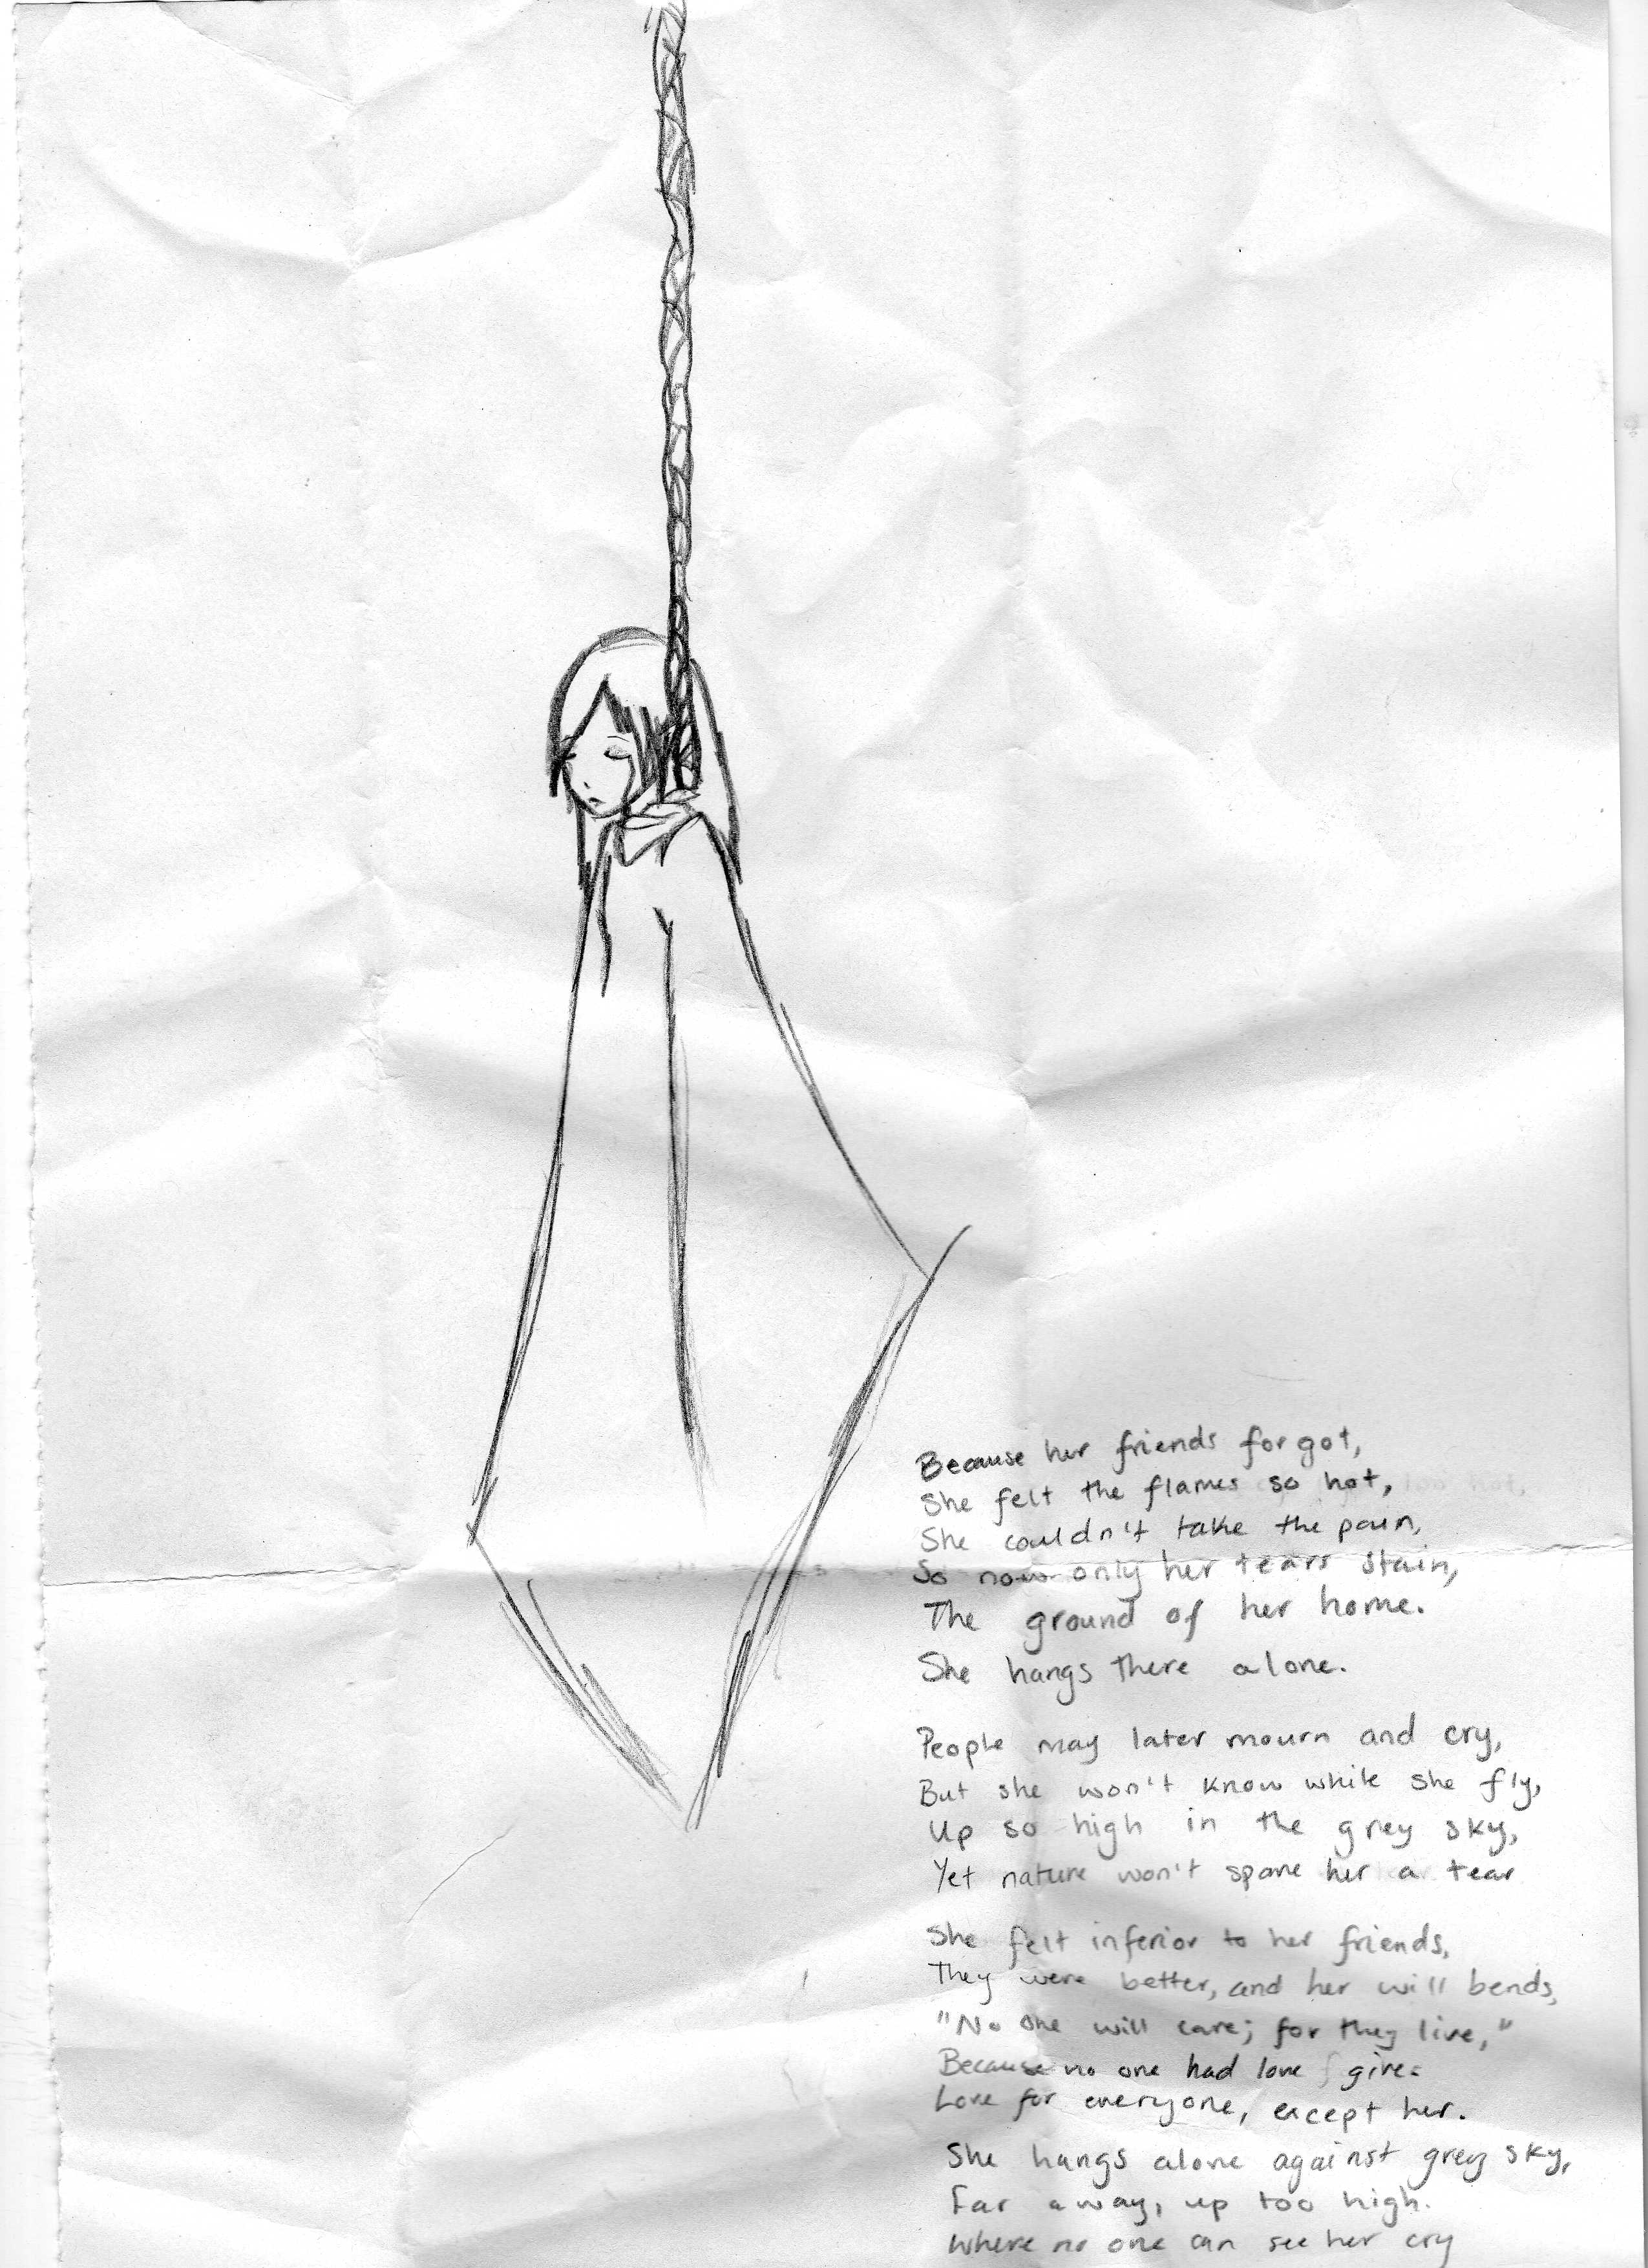 Because her friends forgot,
She felt the flames so hot,
She couldn't take the pain,
So now only her tears stain,
The ground of her home.
She hangs there alone.
People may later mourn and cry,
But she won't know while she fly,
Up so high in the grey sky,
Yet nature won't spare her a tear
She felt inferior to her friends,
They were better, and her will bends,
"No one will care; for they live,"
Because no one had love give:
Love for everyone, except her.
She hangs alone against grey sky,
Far away, up too high.
Where no one can see her cry